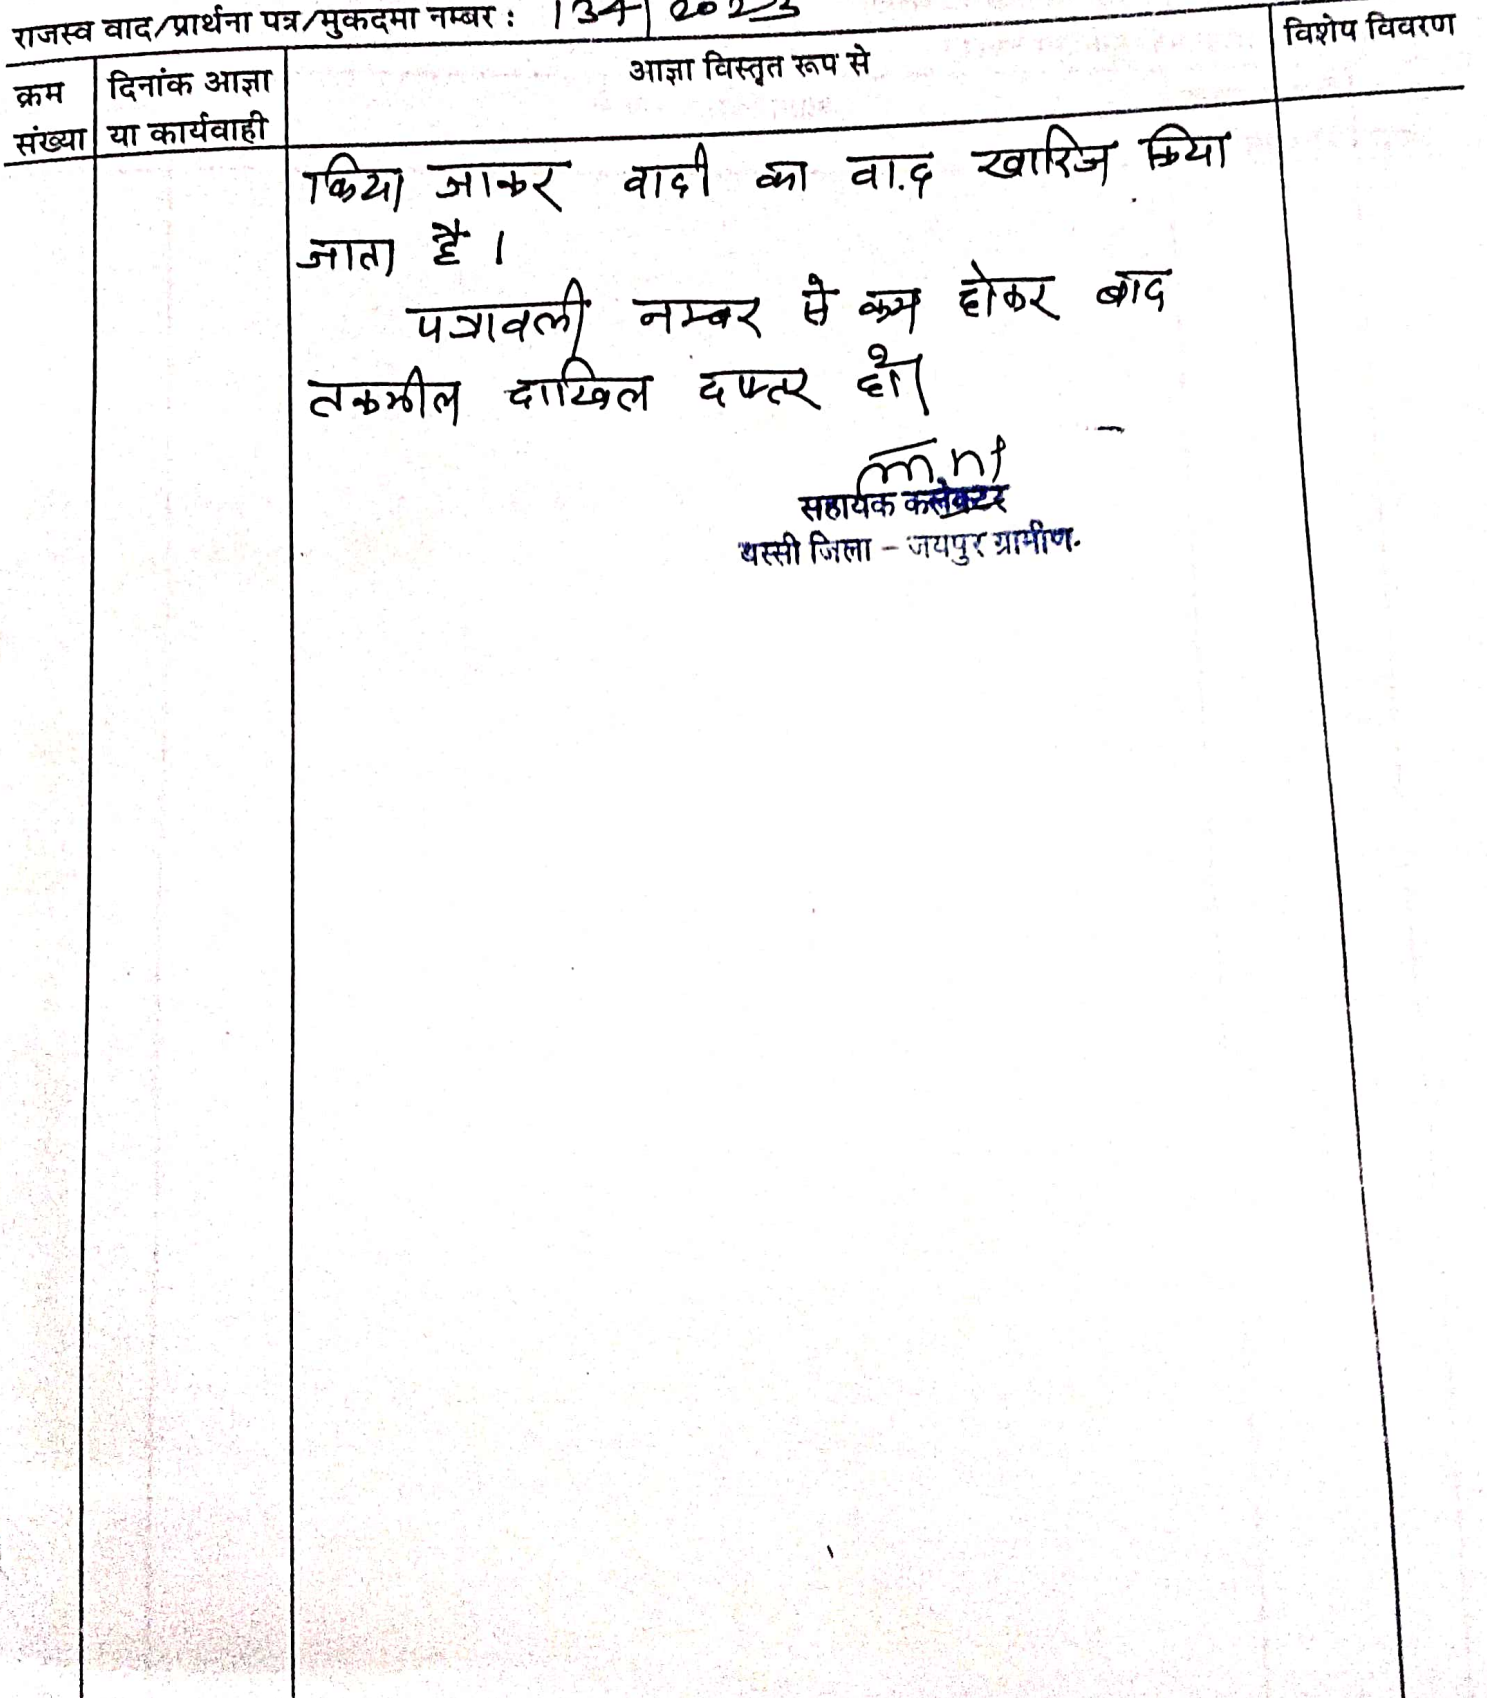 राजस्व वाद/प्रार्थना पत्र/मुकदमा नम्बर : 134/2023
क्रम संख्या
दिनांक आज्ञा या कार्यवाही
आज्ञा विस्तृत रूप से
विशेष विवरण
किया जाकर वादी का वाद खारिज किया
जाता है ।
पत्रावली नम्बर से कम होकर बाद
तकमील दाखिल दफ्तर हो।
सहायक कलेक्टर
बस्सी जिला - जयपुर ग्रामीण.